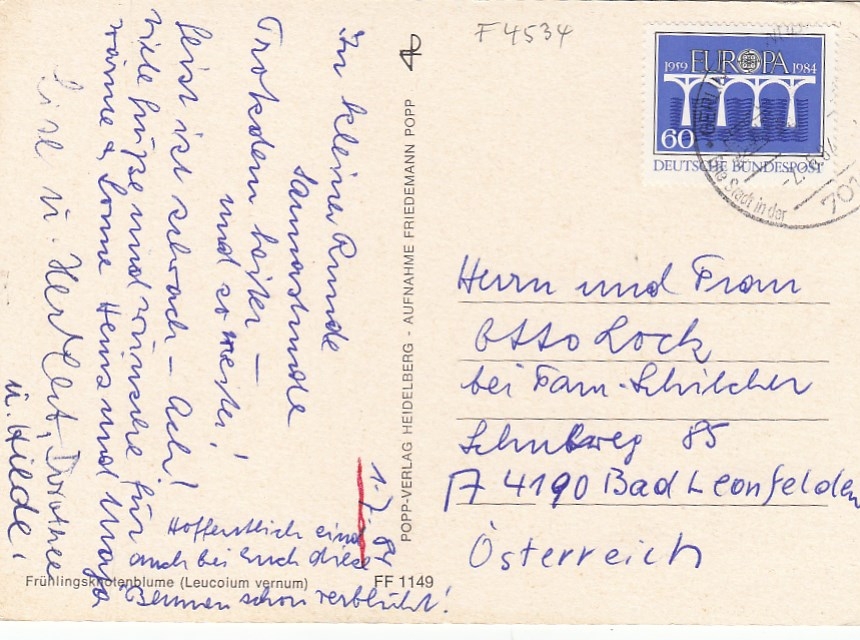 F4534
1959 EUROPA 1984
60
DEUTSCHE BUNDESPOST
-2.-7.84
701
Eine Stadt in der
In kleiner Runde
Trotzdem heiter —
und so weiter!
Geist ist schwach – Ach!
viele Grüße und Wünsche für
Wärme & Sonne Heinz und
Lise u. Herbert, Dorothee
u. Hilde.
1.7.84
Hoffentlich sind
auch bei Euch diese
Blumen schon verblüht!
POPP-VERLAG HEIDELBERG - AUFNAHME FRIEDEMANN POPP
Frühlingsknotenblume (Leucoium vernum)
FF 1149
Herrn und Frau
Otto Lock
bei Fam. Schilcher
85
A 4190 Bad Leonfelden
Österreich